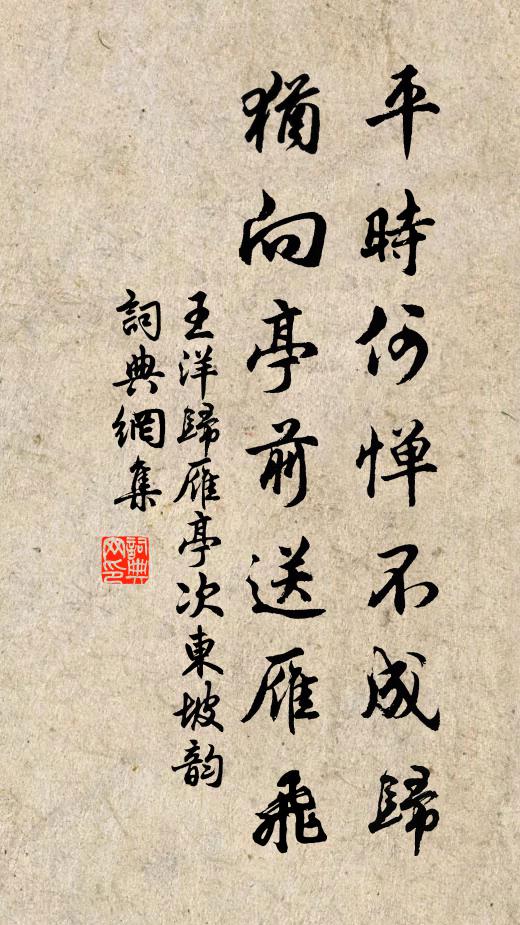 平時何憚不成歸
猶向亭前送雁飛
王洋歸雁亭次東坡韵
詞典網集
詞典
网印